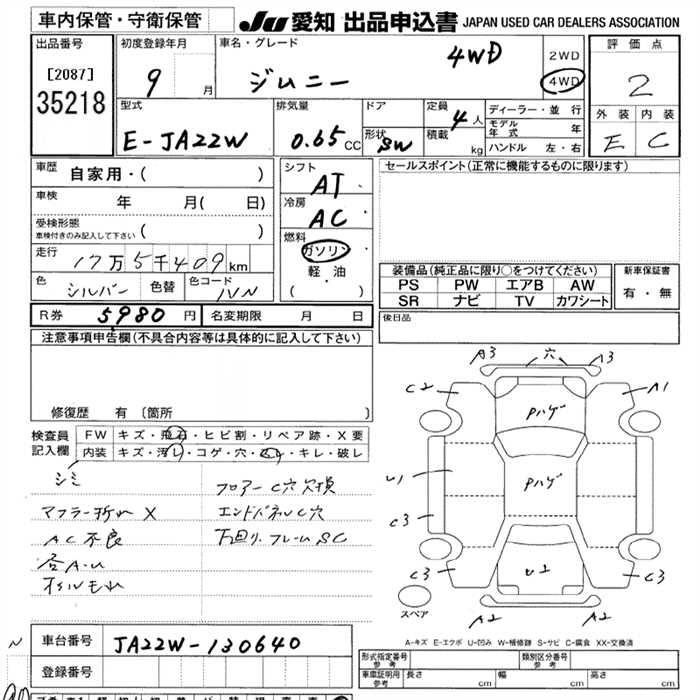 車内保管・守衛保管
JU 愛知 出品申込書 JAPAN USED CAR DEALERS ASSOCIATION
出品番号
[2087]
35218
初度登録年月
9 月
車名・グレード
ジムニー 4WD
2WD
4WD
評価点
2
外装 内装
E C
型式
E-JA22W
排気量
0.65 CC
ドア
形状
SW
定員
4 人
積載
kg
ディーラー・並行
モデル年式 年
ハンドル 左・右
車歴
自家用・( )
車検
年 月( 日)
受検形態
車検付きのみ記入して下さい ( )
走行
17万5千409km
色
シルバー
色替
色コード
1VN
シフト
AT
冷房
AC
燃料
ガソリン
軽・油
( )
セールスポイント(正常に機能するものに限ります)
装備品(純正品に限り○をつけてください)
PS PW エアB AW
SR ナビ TV カワシート
新車保証書
有・無
後日品
R券 5980 円 名変期限 月 日
注意事項申告欄(不具合内容等は具体的に記入して下さい)
修復歴 有〔箇所 〕
検査員記入欄
FW キズ・飛石・ヒビ割・リペア跡・X要
内装 キズ・汚レ・コゲ・穴・スレ・キレ・破レ
シミ
マフラー折れ X
AC不良
各A・U
オイルもれ
フロアーC穴欠損
エンドパネルC穴
下廻り・フレームSC
A3 穴 A3
C2 A1
Pハゲ
U1
Pハゲ
C3
C3 U1 C3
スペア
A2 A2
A-キズ E-エクボ U-凹み W-補修跡 S-サビ C-腐食 XX-交換済
車台番号 JA22W-130640
登録番号
形式指定番号 参考
類別区分番号 参考
車庫証明用 参考 長さ cm 幅 cm 高さ cm